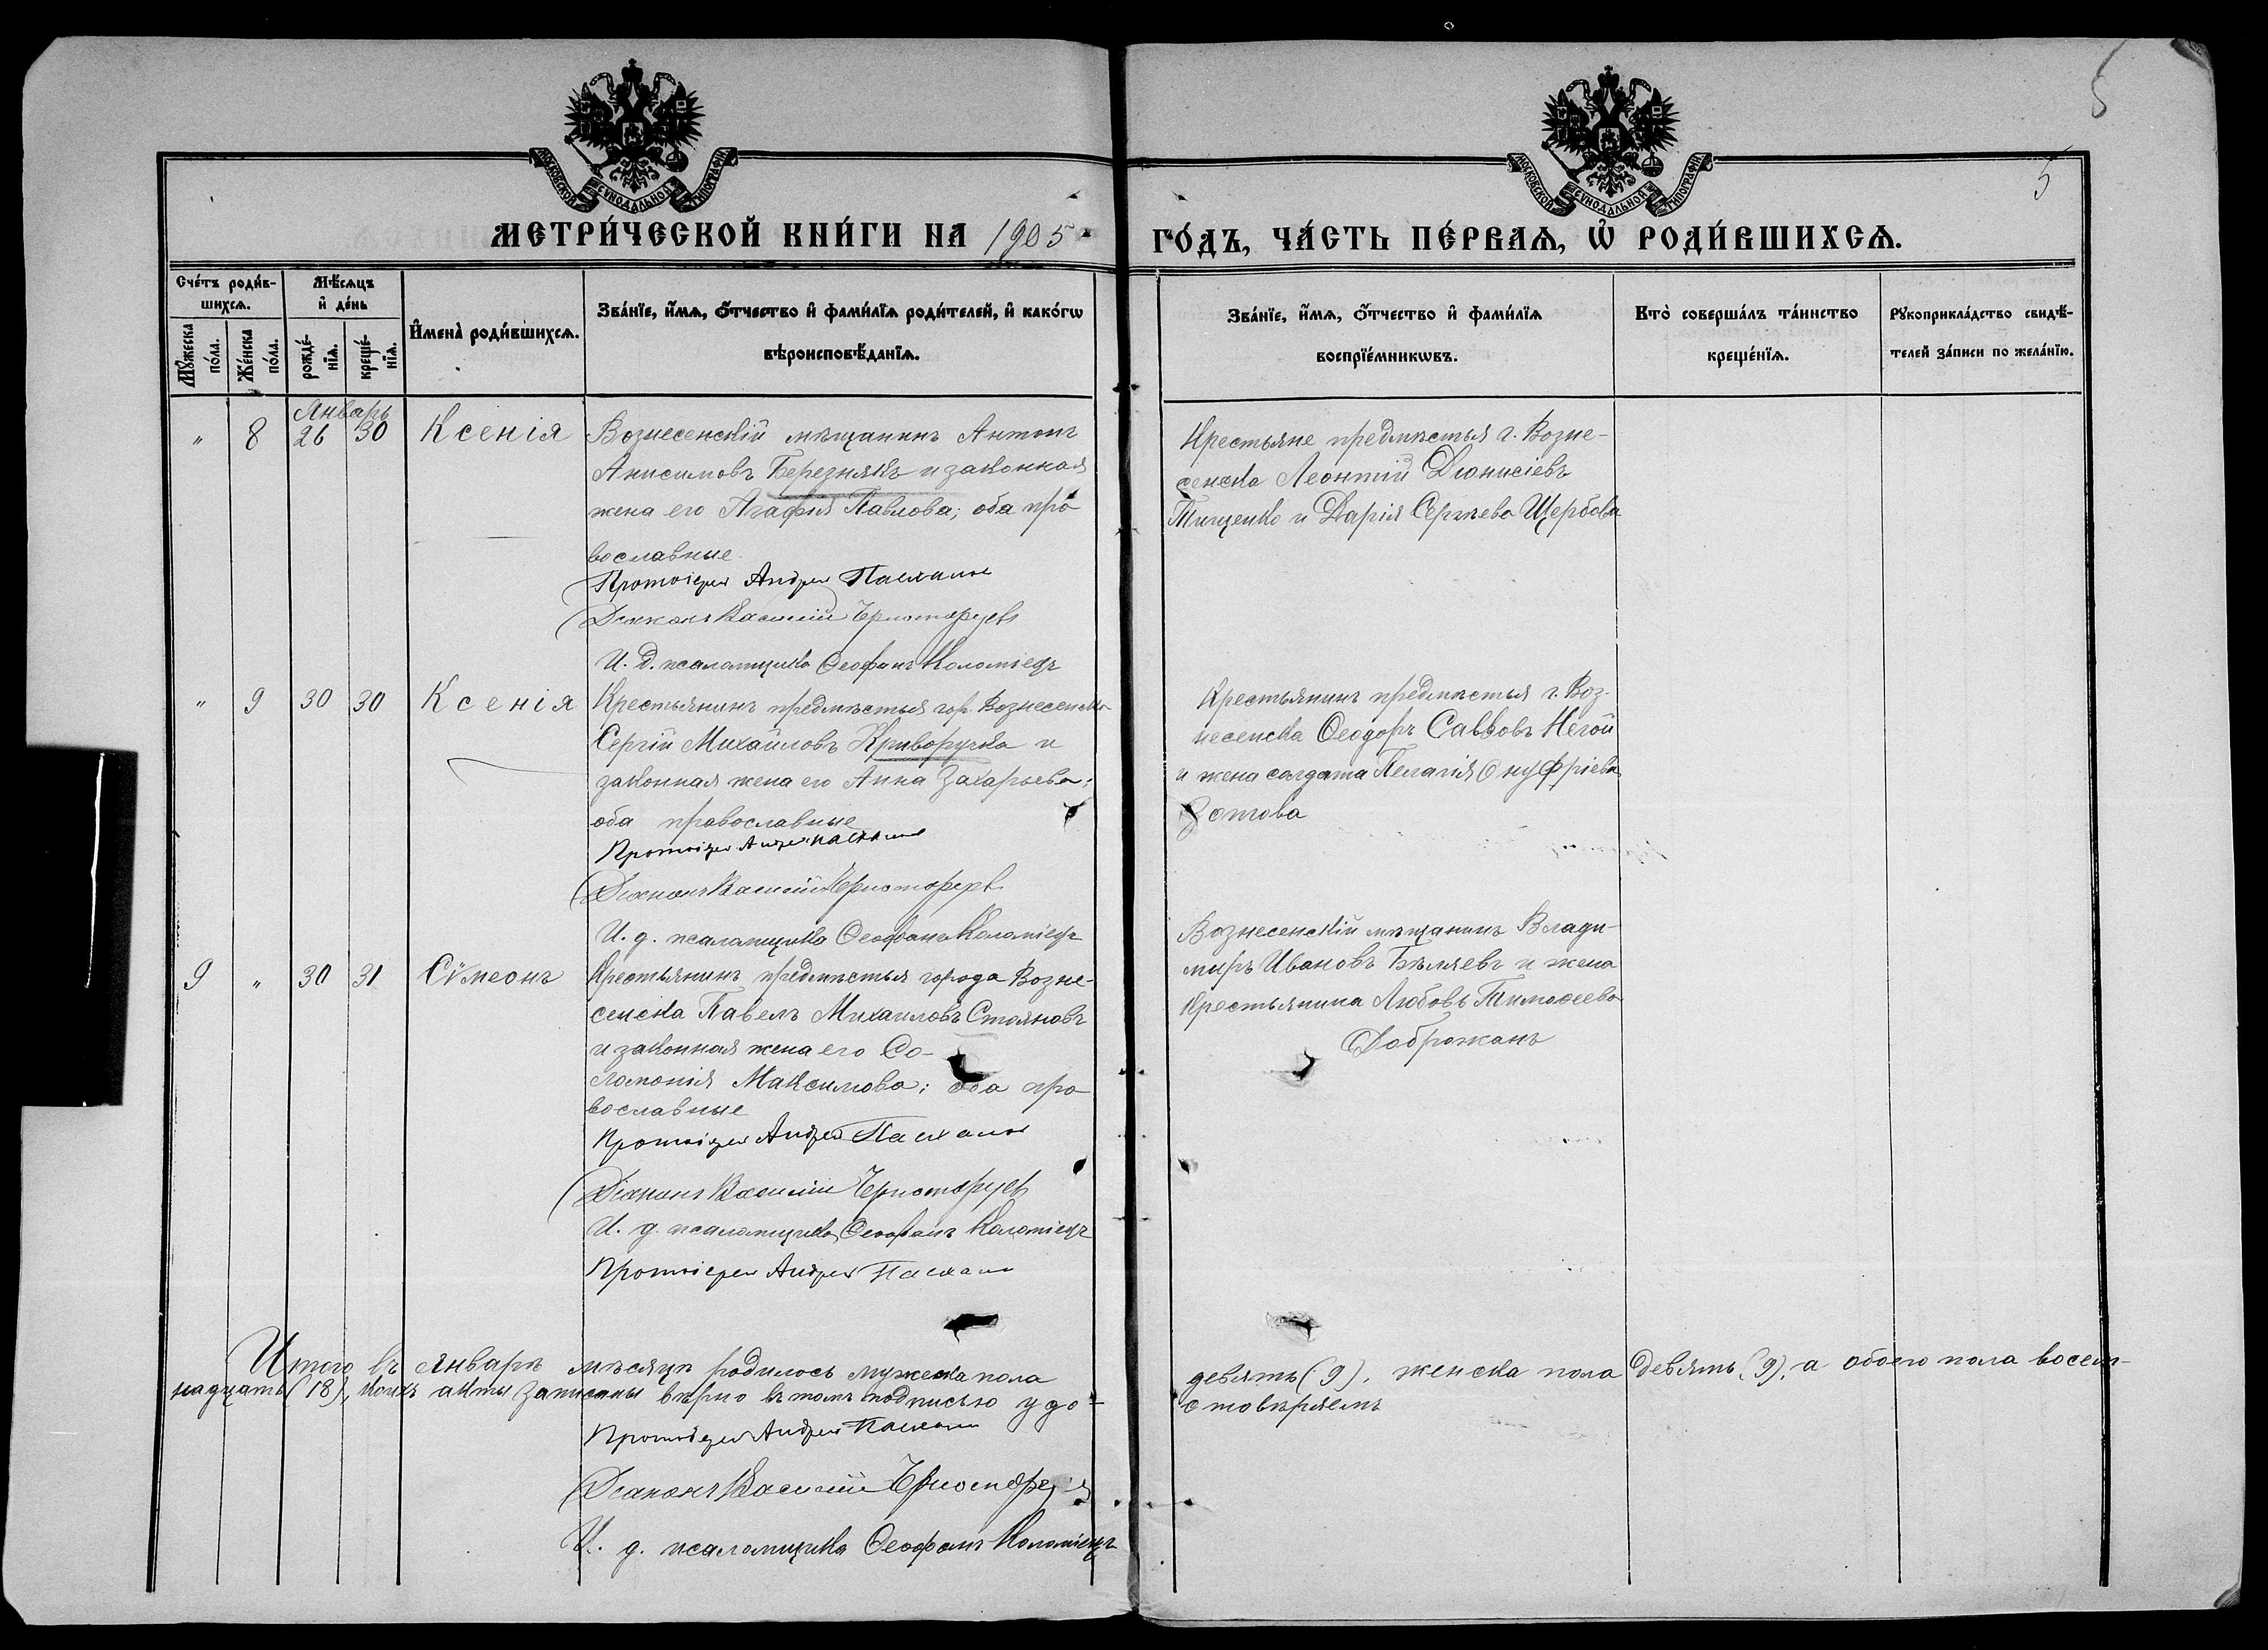 5
5
МОСКОВСКОЙ СѴНОДАЛЬНОЙ ТИПОГРАФІИ
МОСКОВСКОЙ СѴНОДАЛЬНОЙ ТИПОГРАФІИ
МЕТРИ́ЧЕСКОЙ КНИ́ГИ НА 1905
ГО́ДЪ, ЧА́СТЬ ПЕ́РВАѦ, Ѽ РОДИ́ВШИХСѦ.
Сче́тъ роди́в-
шихсѧ.
Мꙋ́жеска по́ла.
Же́нска по́ла.
Мѣ́сѧцъ
и҆ де́нь
рожде́-
нїѧ.
креще́-
нїѧ.
И҆мена̀ роди́вшихсѧ.
Зва́нїе, и҆́мѧ, ѻ҆́тчество и҆ фами́лїѧ роди́телей, и҆ како́гѡ
вѣроисповѣ́данїѧ.
Зва́нїе, и҆́мѧ, ѻ҆́тчество и҆ фами́лїѧ
воспрїе́мникѡвъ.
Кто̀ соверша́лъ та́инство
креще́нїѧ.
Рꙋкоприкла́дство свидѣ́-
телей за́писи по жела́нїю.
Январь
" 8 26 30 Ксенія
Вознесенскій мѣщанинъ Антонъ
Анисимовъ Березнякъ и законная
жена его Агафія Павлова; оба пра
вославные
Протоіерей Андрей
Діаконъ Василій
И. д. псаломщика Ѳеофанъ Коломіецъ
Крестьяне предмѣстья г. Возне-
сенска Леонтій Діонисіевъ
Тищенко и Дарія Сергѣева Щербова
" 9 30 30 Ксенія
Крестьянинъ предмѣстья гор. Вознесенска
Сергій Михайловъ Криворучка и
законная жена его Анна Захарьева;
оба православные
Протоіерей Андрей
Діаконъ Василій
И. д. псаломщика Ѳеофанъ Коломіецъ
Крестьянинъ предмѣстья г. Воз-
несенска Ѳеодоръ Саввовъ Негой
и жена солдата Пелагія Онуфріева
Зотова
9 " 30 31 Сѵмеонъ
Крестьянинъ предмѣстья города Возне-
сенска Павелъ Михаиловъ Стояновъ
и законная жена его Со-
ломонія Максимова; оба пра
вославные
Протоіерей Андрей
Діаконъ Василій
И. д. псаломщика Ѳеофанъ Коломіецъ
Протоіерей Андрей
Вознесенскій мѣщанинъ Влади-
миръ Ивановъ Бѣляевъ и жена
крестьянина Любовь Тимоѳеева
Доброжанъ
Итого въ январѣ мѣсяцѣ родилось мужеска пола
девять (9), женска пола девять (9), а обоего пола восем-
надцать (18), коихъ акты записаны вѣрно въ томъ подписью удо-
стовѣряемъ
Протоіерей Андрей
Діаконъ Василій
И. д. псаломщика Ѳеофанъ Коломіецъ